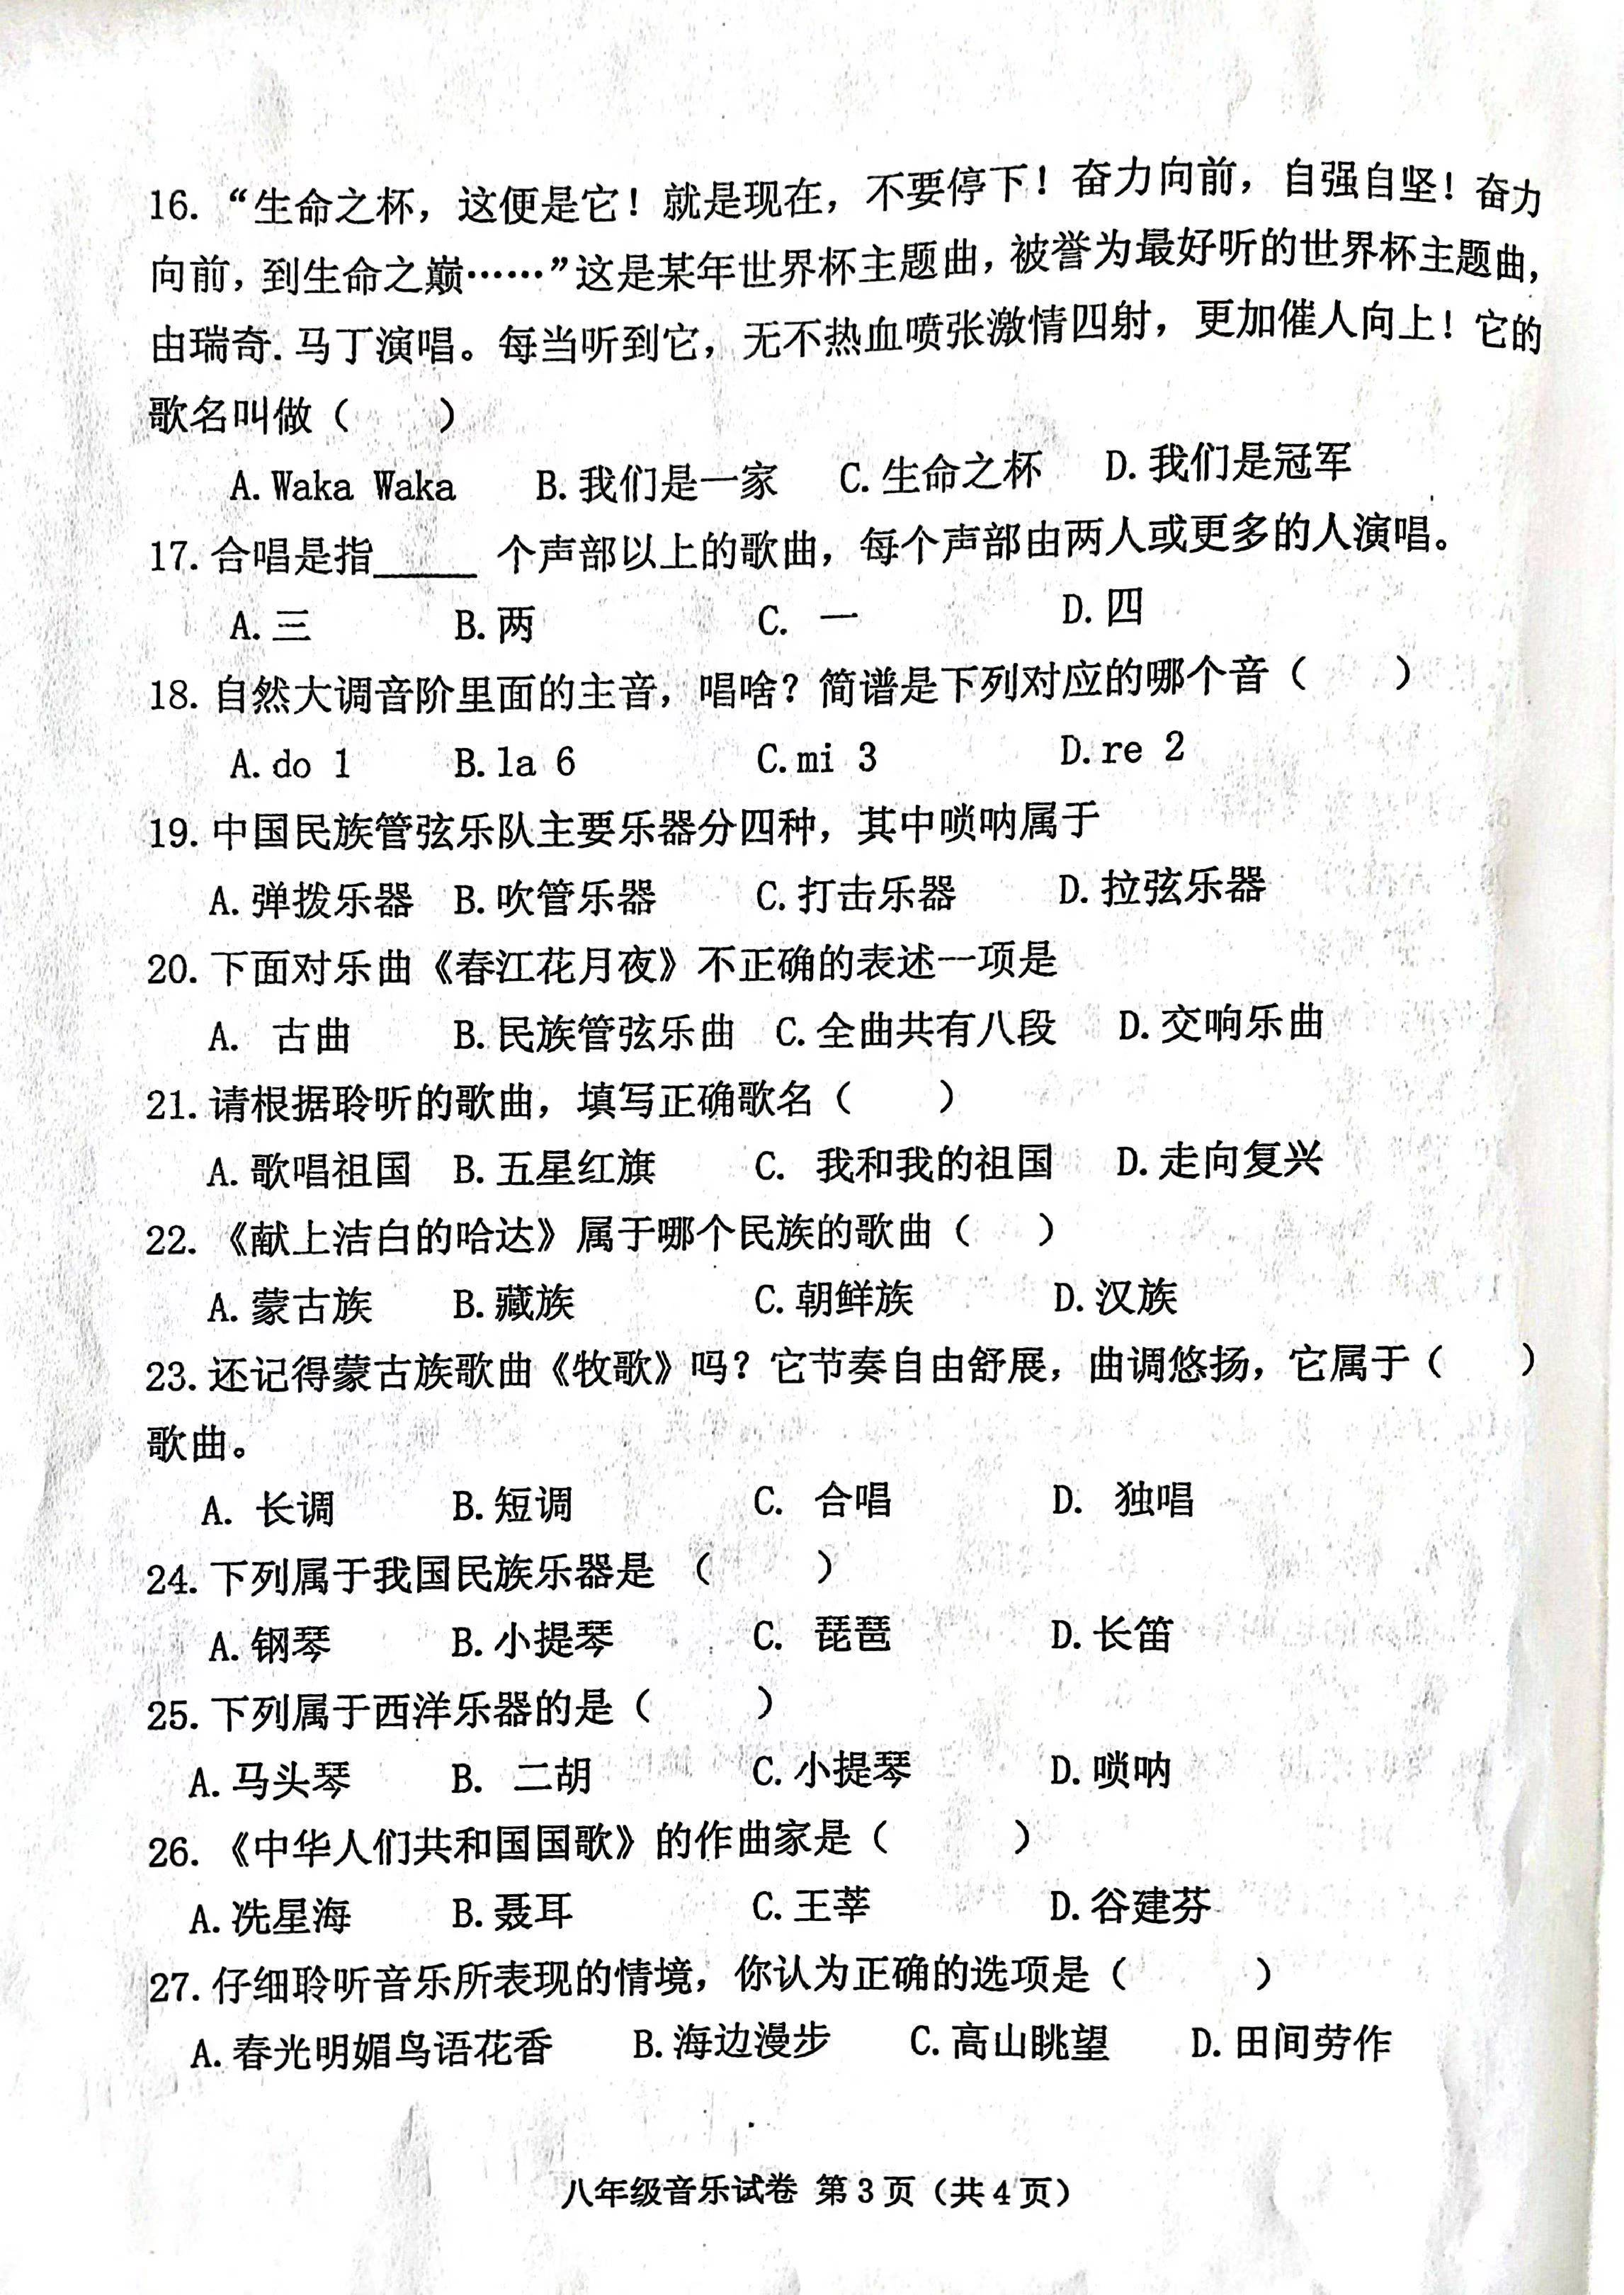 16. “生命之杯，这便是它！就是现在，不要停下！奋力向前，自强自坚！奋力
向前，到生命之巅……”这是某年世界杯主题曲，被誉为最好听的世界杯主题曲，
由瑞奇.马丁演唱。每当听到它，无不热血喷张激情四射，更加催人向上！它的
歌名叫做（　　）
A. Waka Waka　B. 我们是一家　C. 生命之杯　D. 我们是冠军
17. 合唱是指_____ 个声部以上的歌曲，每个声部由两人或更多的人演唱。
A. 三　B. 两　C. 一　D. 四
18. 自然大调音阶里面的主音，唱啥？简谱是下列对应的哪个音（　　）
A. do 1　B. la 6　C. mi 3　D. re 2
19. 中国民族管弦乐队主要乐器分四种，其中唢呐属于
A. 弹拨乐器　B. 吹管乐器　C. 打击乐器　D. 拉弦乐器
20. 下面对乐曲《春江花月夜》不正确的表述一项是
A. 古曲　B. 民族管弦乐曲　C. 全曲共有八段　D. 交响乐曲
21. 请根据聆听的歌曲，填写正确歌名（　　）
A. 歌唱祖国　B. 五星红旗　C. 我和我的祖国　D. 走向复兴
22. 《献上洁白的哈达》属于哪个民族的歌曲（　　）
A. 蒙古族　B. 藏族　C. 朝鲜族　D. 汉族
23. 还记得蒙古族歌曲《牧歌》吗？它节奏自由舒展，曲调悠扬，它属于（　　）
歌曲。
A. 长调　B. 短调　C. 合唱　D. 独唱
24. 下列属于我国民族乐器是 （　　）
A. 钢琴　B. 小提琴　C. 琵琶　D. 长笛
25. 下列属于西洋乐器的是（　　）
A. 马头琴　B. 二胡　C. 小提琴　D. 唢呐
26. 《中华人们共和国国歌》的作曲家是（　　）
A. 冼星海　B. 聂耳　C. 王莘　D. 谷建芬
27. 仔细聆听音乐所表现的情境，你认为正确的选项是（　　）
A. 春光明媚鸟语花香　B. 海边漫步　C. 高山眺望　D. 田间劳作
八年级音乐试卷 第 3 页（共 4 页）